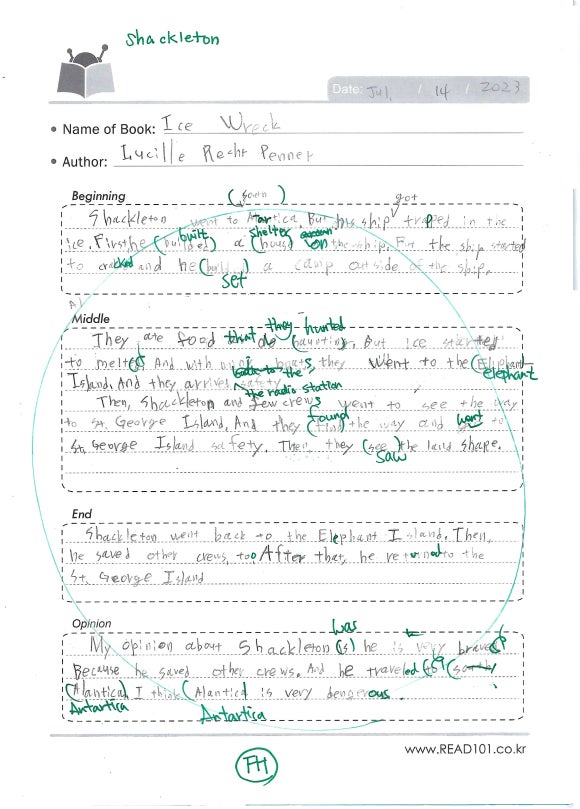 Shackleton
Date: Jul. / 14 / 2023
Name of Book: Ice Wreck
Author: Lucille Recht Penner
Beginning
(soon) got
Shackleton went to Atartica. But his ship trapped in the
built shelter
ice. First he (builded) a (house) on the ship. But the ship started
to cracked and he (build) a camp outside of the ship.
set
Middle
they hunted
They ate food that do (haunting). But ice started
to melted. And with boats, they went to the (Elephant
back to the elephant
Island. And they arrived safety.
the radio station
Then, Shackleton and few crews went to see the way
found went
to St. George Island. And they (find) the way and to
St. George Island safety. Then they (see) the land shape.
saw
End
Shackleton went back to the Elephant Island. Then,
he saved other crews, too. After that, he returned to the
St. George Island
Opinion
was
My opinion about Shackleton (is) he is very brave
Because he saved other crews. And he traveled to
(Alantica) I think (Alantica) is very dengerous.
Antartica Antartica
www.READ101.co.kr